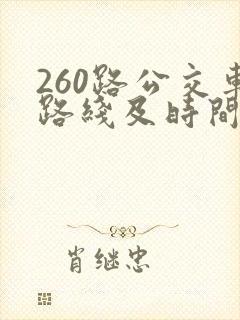 260路公交車
路綫及時間
肖继忠